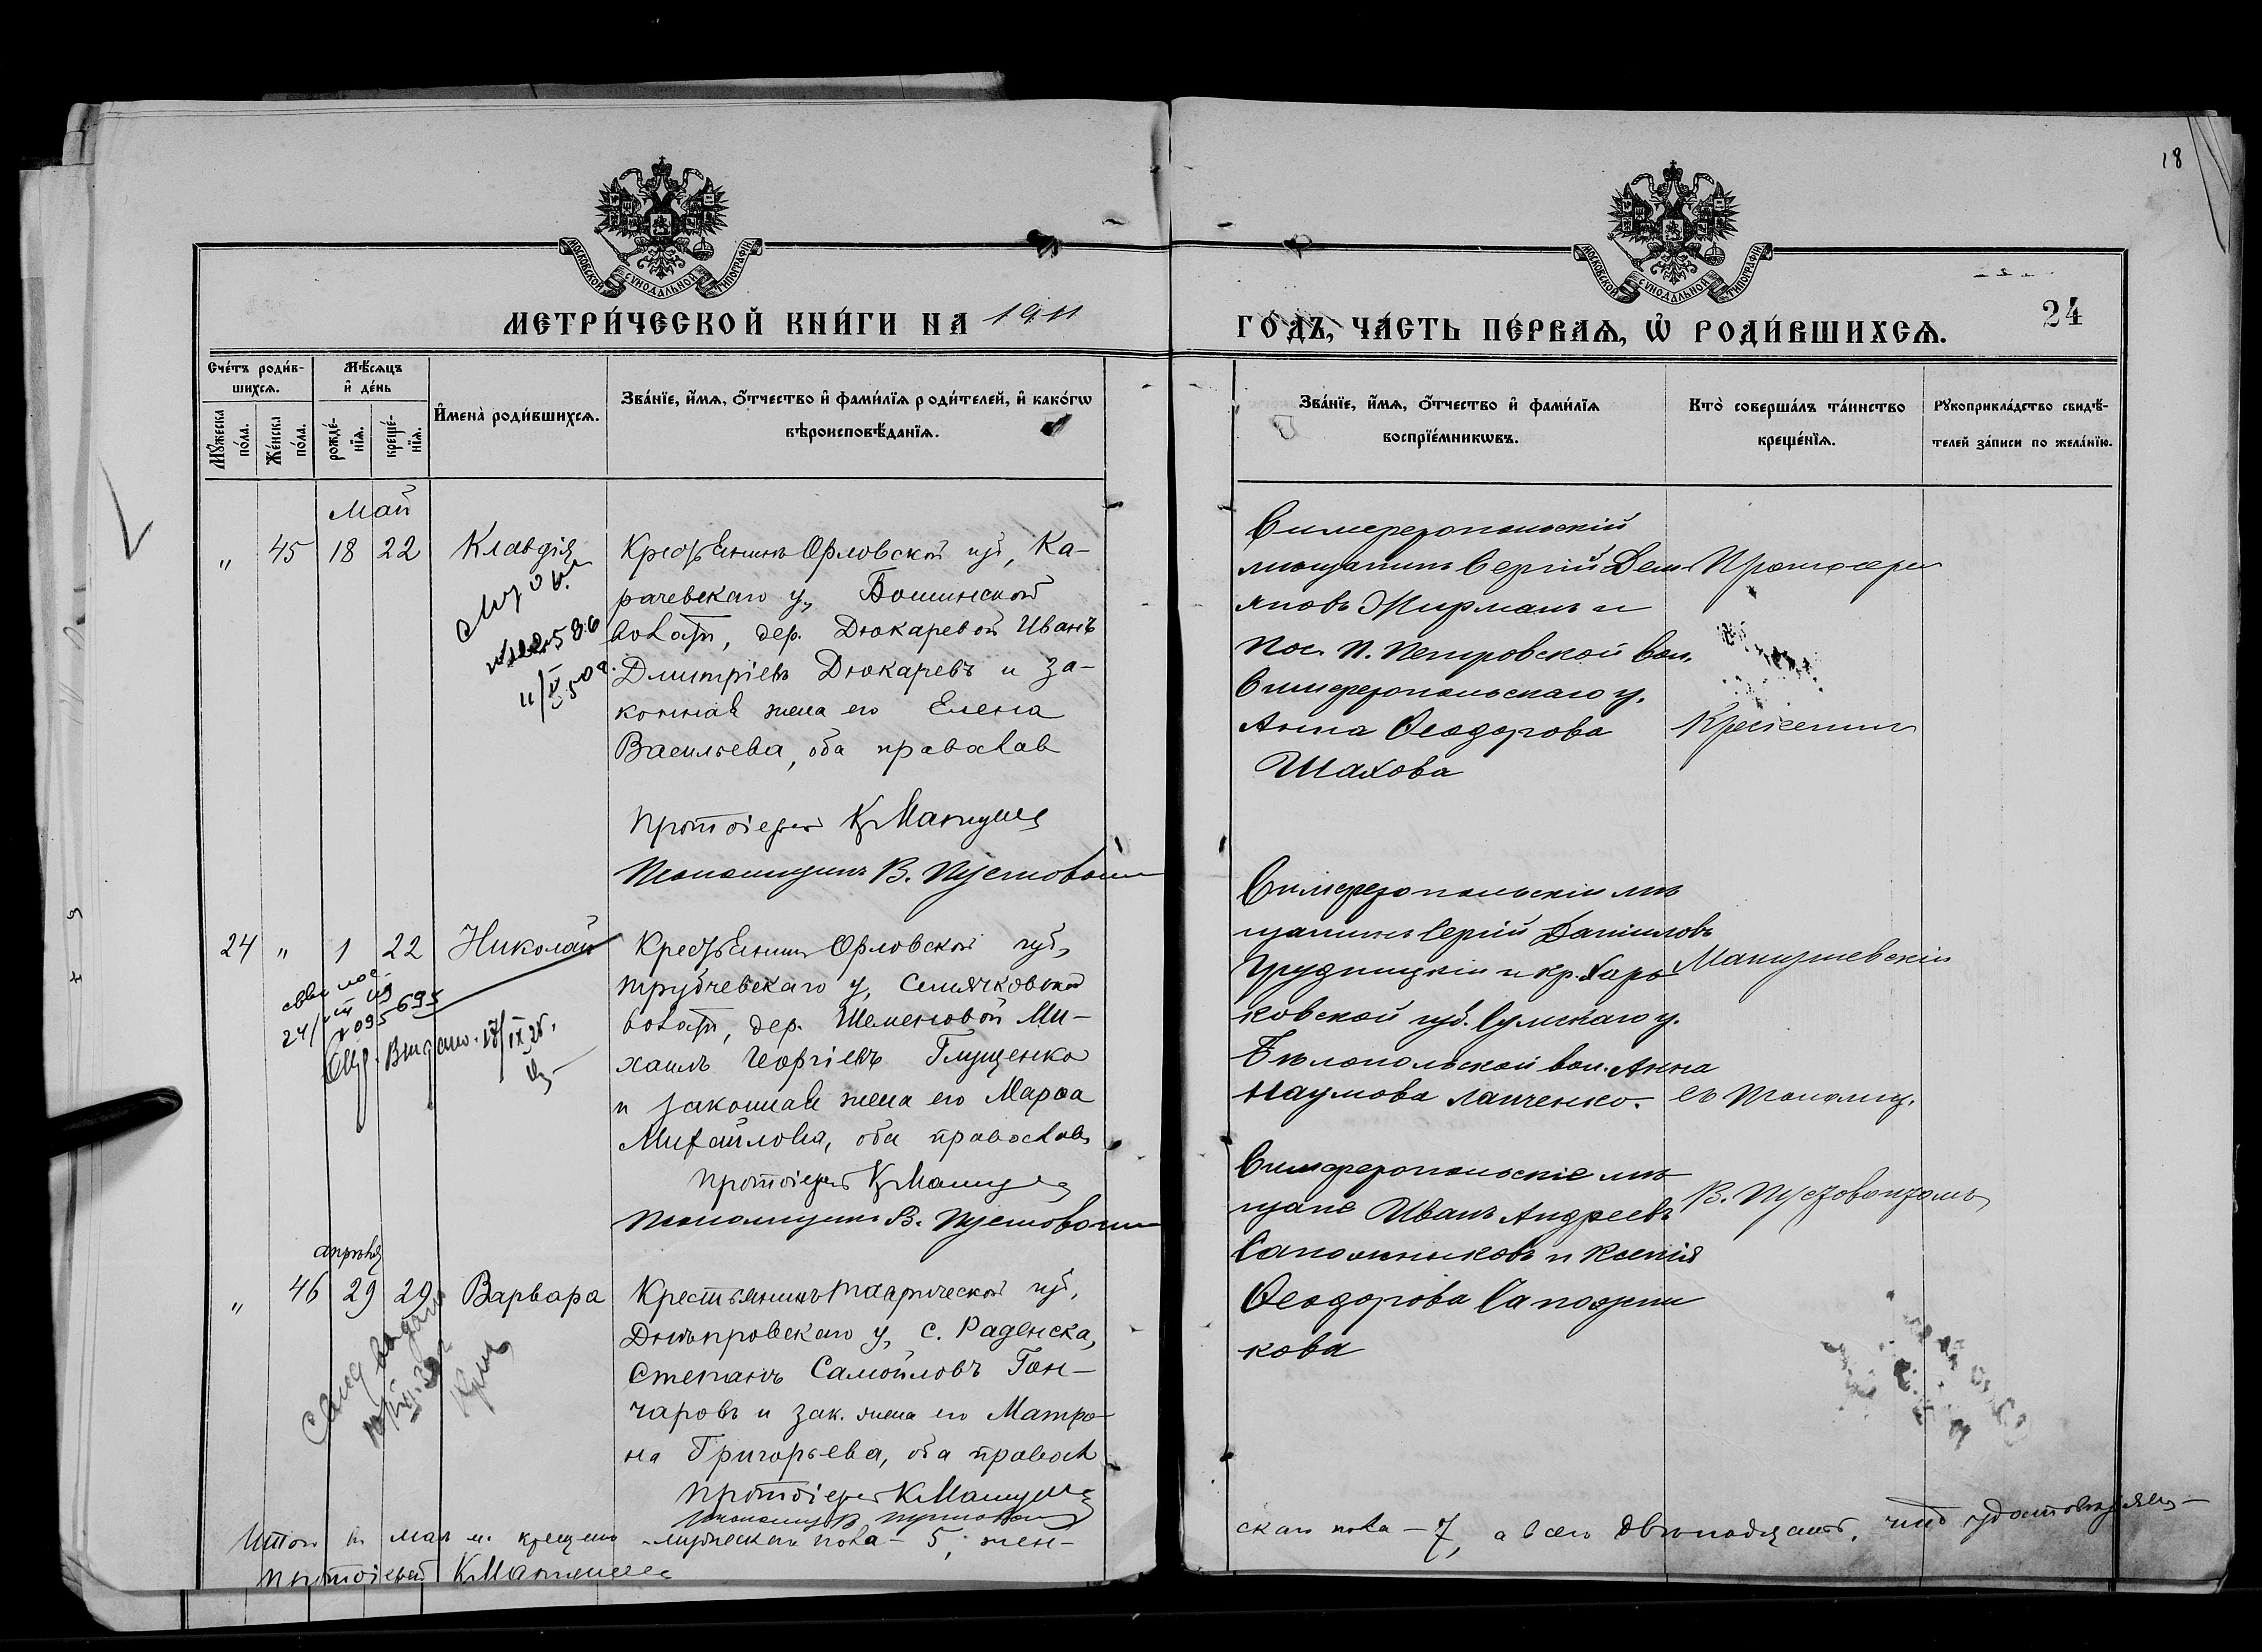 18
МОСКОВСКОЙ СУНОДАЛЬНОЙ ТИПОГРАФІИ
МОСКОВСКОЙ СУНОДАЛЬНОЙ ТИПОГРАФІИ
МЕТРИ́ЧЕСКОЙ КНИ́ГИ НА 1911
ГО́ДЪ, ЧА́СТЬ ПЕ́РВАѦ, Ѡ РОДИ́ВШИХСѦ.
24
Сче́тъ роди́в-
шихсѧ.
Мꙋ́жеска по́ла.
Же́нска по́ла.
Мѣ́сѧцъ
и҆ де́нь
рожде́-
нїѧ.
креще́-
нїѧ.
И҆мена̀ роди́вшихсѧ.
Зва́нїе, и҆́мѧ, ѻ҆́тчество и҆ фами́лїѧ роди́телей, и҆ како́гѡ
вѣроисповѣ́данїѧ.
Зва́нїе, и҆́мѧ, ѻ҆́тчество и҆ фами́лїѧ
воспрїе́мникѡвъ.
Кто̀ соверша́лъ та́инство
креще́нїѧ.
Рꙋкоприкла́дство свидѣ́-
телей за́писи по жела́нїю.
Май
" 45 18 22 Клавдія
Крестьянинъ Орловской губ, Ка-
рачевскаго у., Бошинской
волости, дер. Дюкаревой Иванъ
Дмитріевъ Дюкаревъ и за-
конная жена его Елена
Васильева, оба православ
Протоіерей К Мануше
Псаломщикъ В. Пустово
Симферопольскій
мещанинъ Сергій Дем
яновъ Жирманъ и
пос. Н. Петровской вол.
Симферопольскаго у.
Анна Ѳеодорова
Шахова
Протоіерей
Крискентъ
24 " 1 22 Николай
24/VIII 49
№ 095695
Выдано 17/IX 25.
Крестьянинъ Орловской губ,
Трубчевскаго у, Семячковской
волости, дер. Шеменовой Ми-
хаилъ Георгіевъ Глущенко
и законная жена его Марѳа
Михайлова, оба православ
Протоіерей К Мануше
Псаломщикъ В. Пустово
Симферопольскій мѣ
щанинъ Сергій Даниловъ
Грудницкій и кр. Харь
ковской губ. Сумскаго у.
Бѣлопольской вол. Анна
Наумова Лапченко.
Манушевскій
съ Псаломщ.
В. Пустовойтомъ
апрѣля
" 46 29 29 Варвара
Крестьянинъ Таврической губ,
Днѣпровскаго у, с. Раденска,
Степанъ Самойловъ Гон-
чаровъ и зак. жена его Матро-
на Григорьева, оба правосл
Протоіерей К Мануше
Симферопольскіе мѣ
щане Иванъ Андреевъ
Сапожниковъ и Ксенія
Ѳеодорова Сапожни
кова
Итого въ маѣ м. крещено мужескаго пола - 5, жен-
скаго пола - 7, а всего двѣнадцать, что удостовѣряемъ
Протоіерей К Мануше